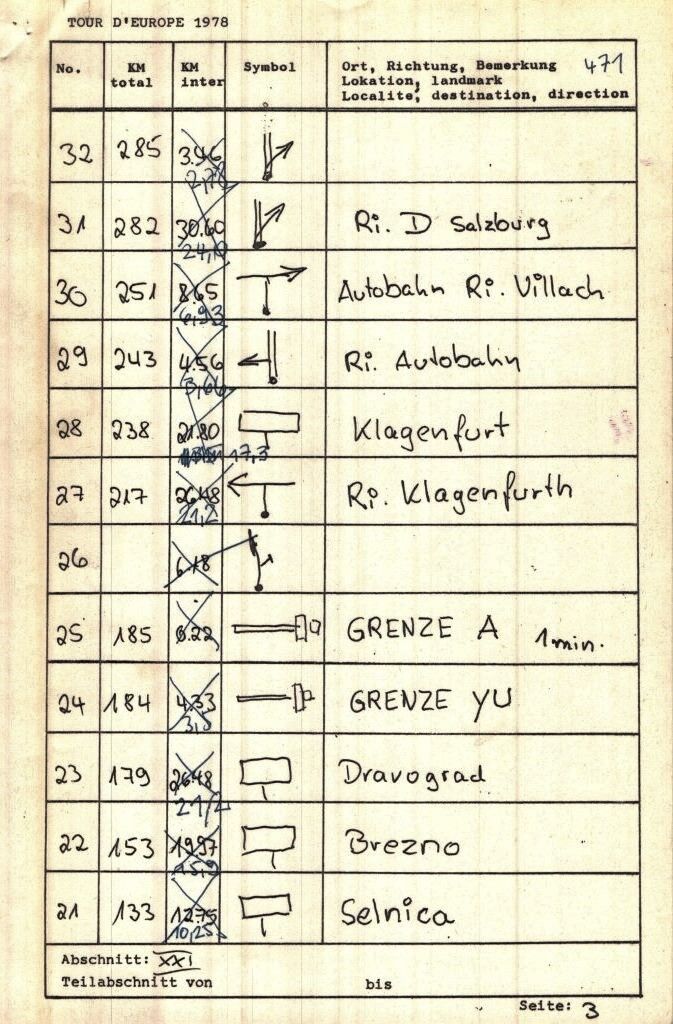 TOUR D'EUROPE 1978
No. KM total KM inter Symbol Ort, Richtung, Bemerkung 471
Lokation, landmark
Localite, destination, direction
32 285 3.46 2,78
31 282 30.60 24, Ri. D Salzburg
30 251 8.65 6,93 Autobahn Ri. Villach
29 243 4.56 3,66 Ri. Autobahn
28 238 21.80 17,3 Klagenfurt
27 217 26.48 21,2 Ri. Klagenfurth
26 6.18
25 185 0.22 GRENZE A 1 min.
24 184 4.33 GRENZE YU
23 179 26.48 21,2 Dravograd
22 153 19.97 15,9 Brezno
21 133 12.75 10,25 Selnica
Abschnitt: XXI
Teilabschnitt von bis
Seite: 3